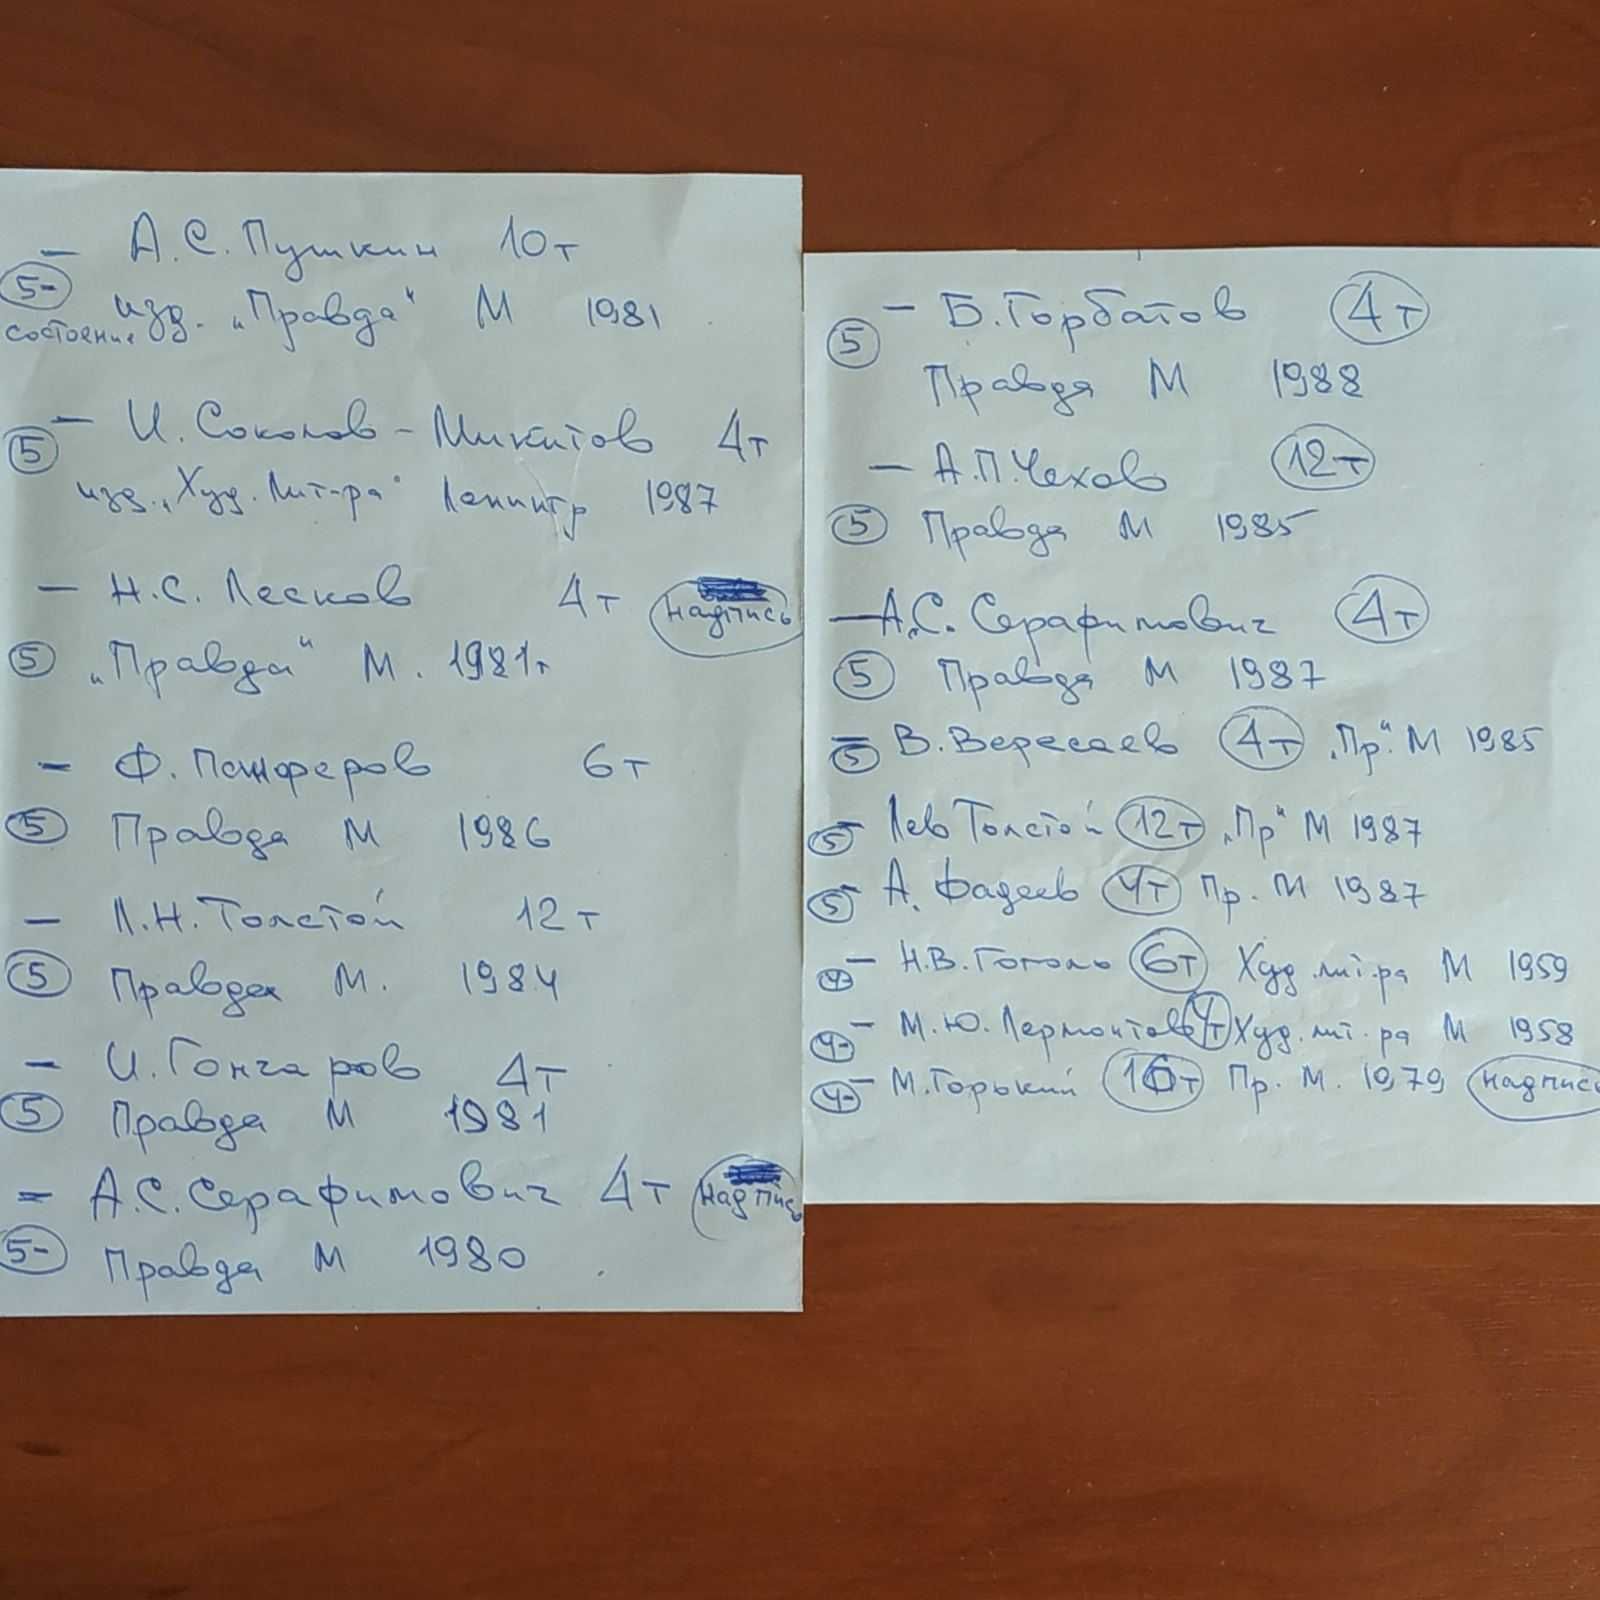 — А.С.Пушкин 10т
5-
состояние изд. „Правда" М 1981
— И. Соколов-Микитов 4т
5
изд. „Худ. Лит-ра" Ленингр 1987
— Н.С. Лесков 4т надпись
5 „Правда" М. 1981г
— Ф. Панферов 6т
5 Правда М 1986
— Л.Н.Толстой 12т
5 Правда М. 1984
— И. Гончаров 4т
5 Правда М 1981
— А.С.Серафимович 4т надпись
5- Правда М 1980
— Б.Горбатов 4т
5
Правда М 1988
— А.П.Чехов 12т
5 Правда М 1985
— А.С. Серафимович 4т
5 Правда М 1987
— 5 В.Вересаев 4т „Пр." М 1985
— 5 Лев Толстой 12т „Пр" М 1987
— 5 А. Фадеев 4т Пр. М 1987
4- — Н.В.Гоголь 6т Худ.лит.ра М 1959
4- — М.Ю.Лермонтов 4т Худ.лит.ра М 1958
4- — М.Горький 16т Пр. М. 1979 надпись